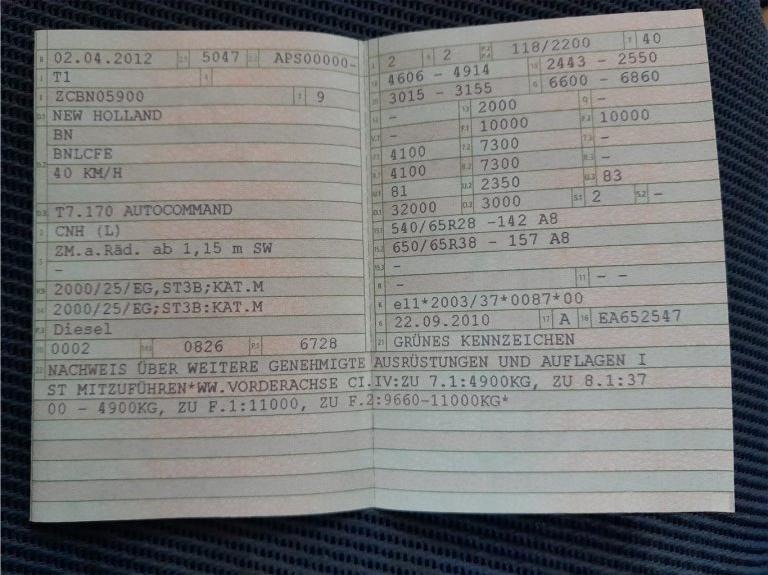 B 02.04.2012 2.1 5047 2.2 APS00000-
J T1 4
E ZCBN05900 3 9
D.1 NEW HOLLAND
BN
D.2 BNLCFE
40 KM/H
D.3 T7.170 AUTOCOMMAND
2 CNH (L)
5 ZM.a.Räd. ab 1,15 m SW
-
V.9 2000/25/EG,ST3B;KAT.M
14 2000/25/EG;ST3B:KAT.M
P.3 Diesel
10 0002 14.1 0826 P.1 6728
L 2 9 2 P.2 P.4 118/2200 T 40
18 4606 - 4914 19 2443 - 2550
20 3015 - 3155 G 6600 - 6860
- 13 2000 Q -
V.7 - F.1 10000 F.2 10000
7.1 4100 7.2 7300 7.3 -
8.1 4100 8.2 7300 8.3 -
U.1 81 U.2 2350 U.3 83
O.1 32000 O.2 3000 S.1 2 S.2 -
15.1 540/65R28 -142 A8
15.2 650/65R38 - 157 A8
15.3 -
R - 11 - -
K e11*2003/37*0087*00
6 22.09.2010 17 A 16 EA652547
21 GRÜNES KENNZEICHEN
22 NACHWEIS ÜBER WEITERE GENEHMIGTE AUSRÜSTUNGEN UND AUFLAGEN I
ST MITZUFÜHREN*WW.VORDERACHSE CI.IV:ZU 7.1:4900KG, ZU 8.1:37
00 - 4900KG, ZU F.1:11000, ZU F.2:9660-11000KG*